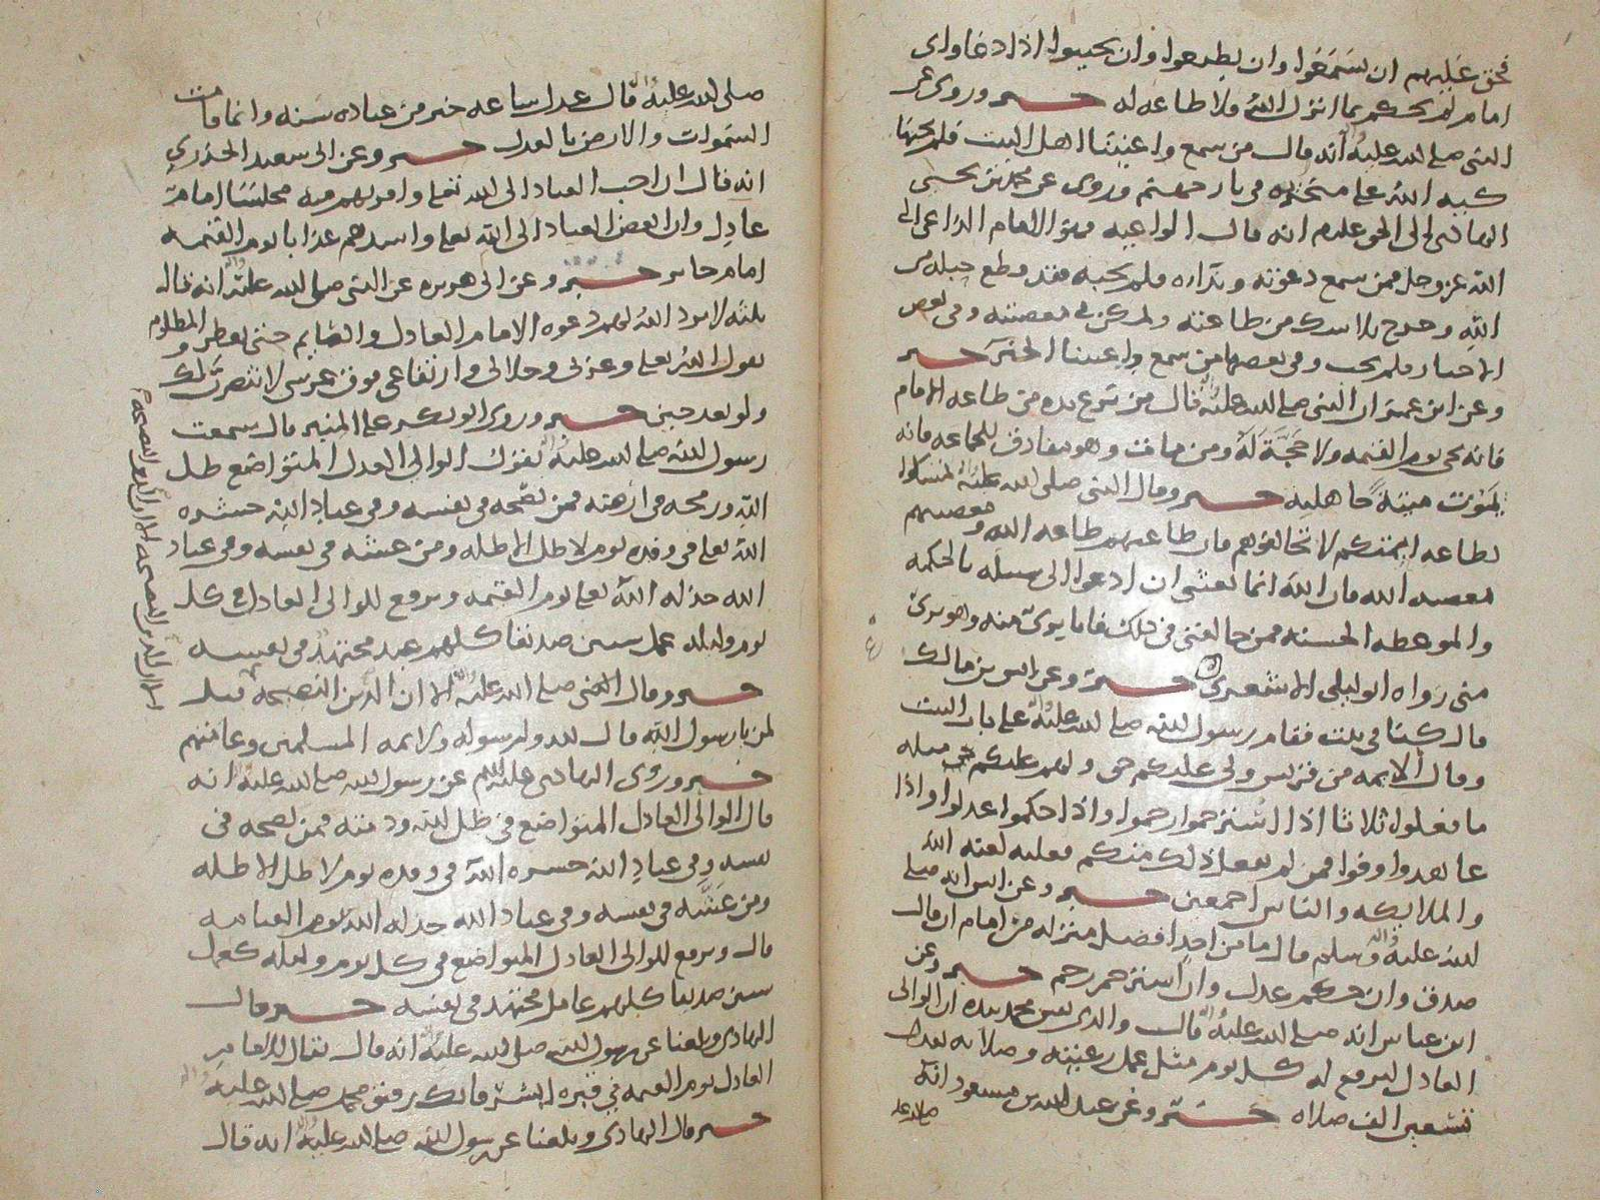 فحق عليهم ان يسمعوا وان يطيعوا وان يجيبوا اذا دعا واي
امام لم يحكم بما انزل الله فلا طاعة له خبر وروي عن
النبي صلى الله عليه واله انه قال من سمع واعيتنا اهل البيت فلم يجبها
كبه الله على منخريه في نار جهنم وروي عن محمد بن يحيى
الهادي الى الحق عليهم انه قال الواعيه فهو الامام الداعي الى
الله عز وجل فمن سمع دعوته ونداره ولم يجبه فقد وقطع حبله من
الله وخرج بلا شك من طاعته ولم يكن في معصيته وفي بعض
الاخبار فلم يجب وفي بعضها من سمع واعيتنا الخبر خبر
وعن ابن عمر ان النبي صلى الله عليه واله قال من نزع يده من طاعه الامام
فانه يجي يوم القيمه ولا حجة له ومن مات وهو مفارق للجماعه فانه
يموت ميتة جاهليه خبر وقال النبي صلى الله عليه واله تمسكوا
بطاعه ايمتكم لا تخالفوهم فان طاعتهم طاعه الله ومعصيتهم
معصيه الله فان الله انما بعثني ان ادعوا الى سبيله بالحكمه
والموعظه الحسنه فمن خالفني في ذلك فانا بريٌ منه وهو بريٌ
مني رواه ابو ليلى الاشعري خبر وعن انس بن مالك
قال كنا في بيت فقام رسول الله صلى الله عليه واله على باب البيت
وقال الايمه من قريش ولي عليكم حق ولهم عليكم حق مثله
ما فعلوا ثلاثا اذا استرحموا رحموا واذا حكموا عدلوا واذا
عاهدوا وفوا فمن لم يفعل ذلك منكم فعليه لعنه الله
والملايكه والناس اجمعين خبر وعن انس انه صلى
الله عليه واله وسلم قال ما من احد افضل منزله من امام ان قال
صدق وان حكم عدل وان استرحم رحم خبر وعن
ابن عباس انه صلى الله عليه واله قال والذي نفس محمد بيده ان الوالي
العادل ليرفع له كل يوم مثل عمل رعيته وصلاته تعدل
تسعين الف صلاه خبر وعن عبد الله بن مسعود انه
صلى الله عليه واله قال عدل ساعه خير من عباده سنه وانما قامت
السموات والارض بالعدل خبر وعن ابي سعيد الخدري
انه قال ان احب العباد الى الله تعالى واقربهم منه مجلسا امام
عادل وان ابغض العباد الى الله تعالى واشدهم عذابا يوم القيمه
امام جاير خبر وعن ابي هريره عن النبي صلى الله عليه واله انه قال
ثلثه لا يرد الله لهم دعوه الامام العادل والصايم حتى يفطر والمظلوم
يقول الله تعالى وعزتي وجلالي وارتفاعي فوق عرشي لانتصرن لك
ولو بعد حين خبر وروى ابو بكر على المنبر قال سمعت
رسول الله صلى الله عليه واله يقول الوالي العدل المتواضع ظل
الله ورمحه في ارضه فمن نصحه في نفسه وفي عباد الله حشره
الله تعالى في وفده يوم لا ظل الا ظله ومن غشه في نفسه وفي عباد
الله خذله الله تعالى يوم القيمه ويرفع للوالي العادل في كل
يوم وليله عمل ستين صديقا كلهم عبد مجتهد في نفسه
خبر وقال النبي صلى الله عليه واله الا ان الدين النصيحه قيل
لمن يا رسول الله قال لله ولرسوله ولايمه المسلمين وعامتهم
خبر وروى الهادي عليه السلام عن رسول الله صلى الله عليه واله انه
قال الوالي العادل المتواضع في ظل الله وذمته فمن نصحه في
نفسه وفي عباد الله حشره الله في وفده يوم لا ظل الا ظله
ومن غشه في نفسه وفي عباد الله خذله الله يوم القيامه
قال ويرفع للوالي العادل المتواضع في كل يوم وليله كعمل
ستين صديقا كلهم عامل مجتهد في نفسه خبر وقال
الهادي وبلغنا عن رسول الله صلى الله عليه واله انه قال يقال للامام
العادل يوم القيمه في قبره ابشر فانك رفيق محمد صلى الله عليه واله
خبر قال الهادي وبلغنا عن رسول الله صلى الله عليه واله انه قال